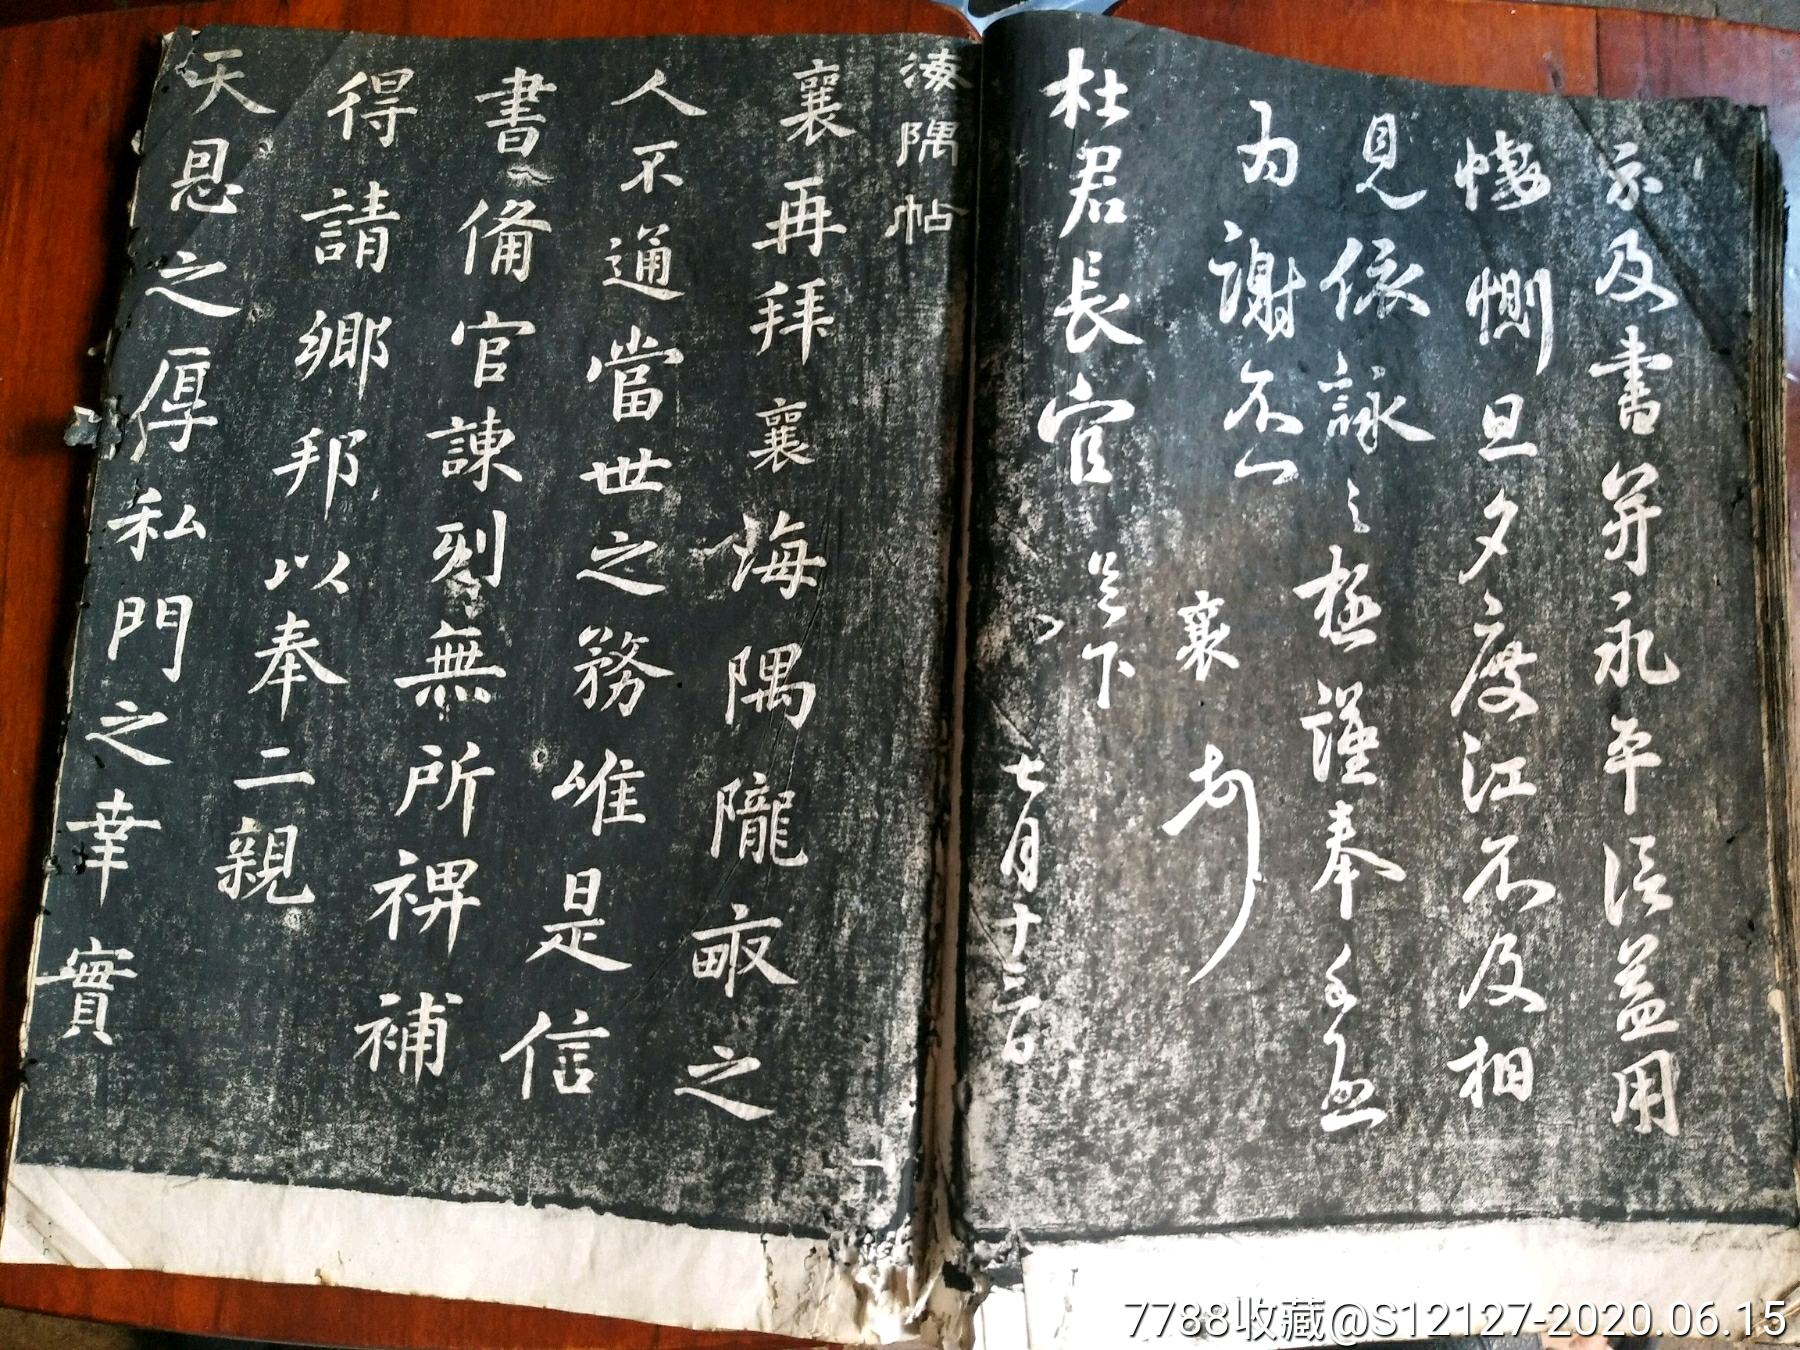 示及書并永平信益用
悽惻旦夕度江不及相
見依詠之極謹奉手啟
為謝不一一
襄頓首
杜君長官足下
七月十三日
海隅帖
襄再拜襄海隅隴畝之
人不通當世之務唯是信
書備官諫列無所裨補
得請鄉邦以奉二親
天恩之厚私門之幸實
7788收藏@S12127-2020.06.15